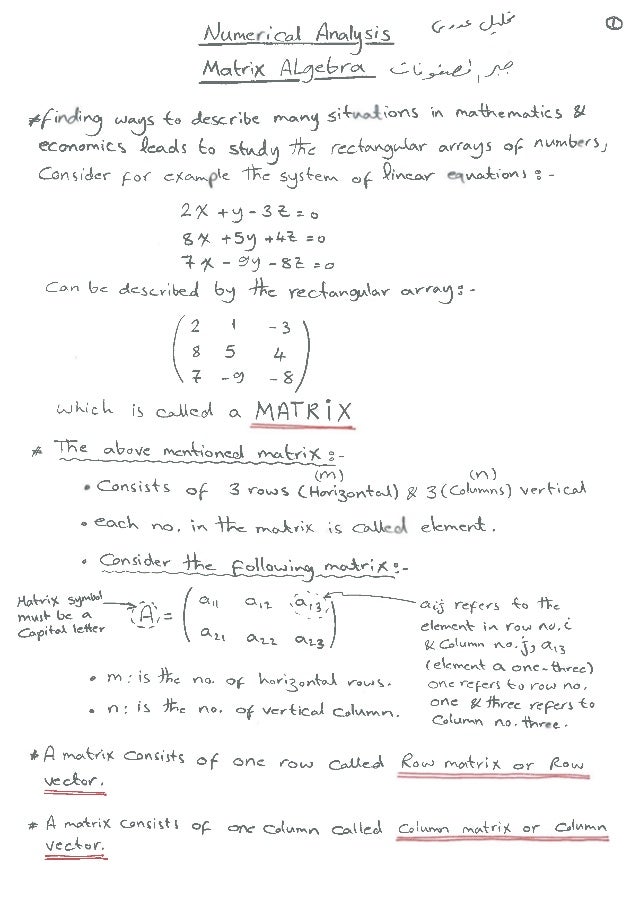 Numerical Analysis تحليل عددي 1
Matrix ALgebra جبر المصفوفات
*finding ways to describe many situations in mathematics &
economics leads to study the rectangular arrays of numbers,
Consider for example the system of linear equations :-
2x + y - 3z = 0
8x + 5y + 4z = 0
7x - 9y - 8z = 0
Can be described by the rectangular array :-
2 1 -3
8 5 4
7 -9 -8
which is called a MATRiX
* The above mentioned matrix :-
(m) (n)
• Consists of 3 rows (Horizontal) & 3 (Columns) vertical
• each no. in the matrix is called element.
• Consider the following matrix :-
Matrix symbol must be a Capital letter
A = a11 a12 a13
a21 a22 a23
aij refers to the
element in row no. i
& Column no. j, a13
(element a one-three)
one refers to row no.
one & three refers to
Column no. three.
• m : is the no. of horizontal rows.
• n : is the no. of vertical column.
* A matrix consists of one row called Row matrix or Row
vector.
* A matrix consists of one column called Column matrix or Column
vector.